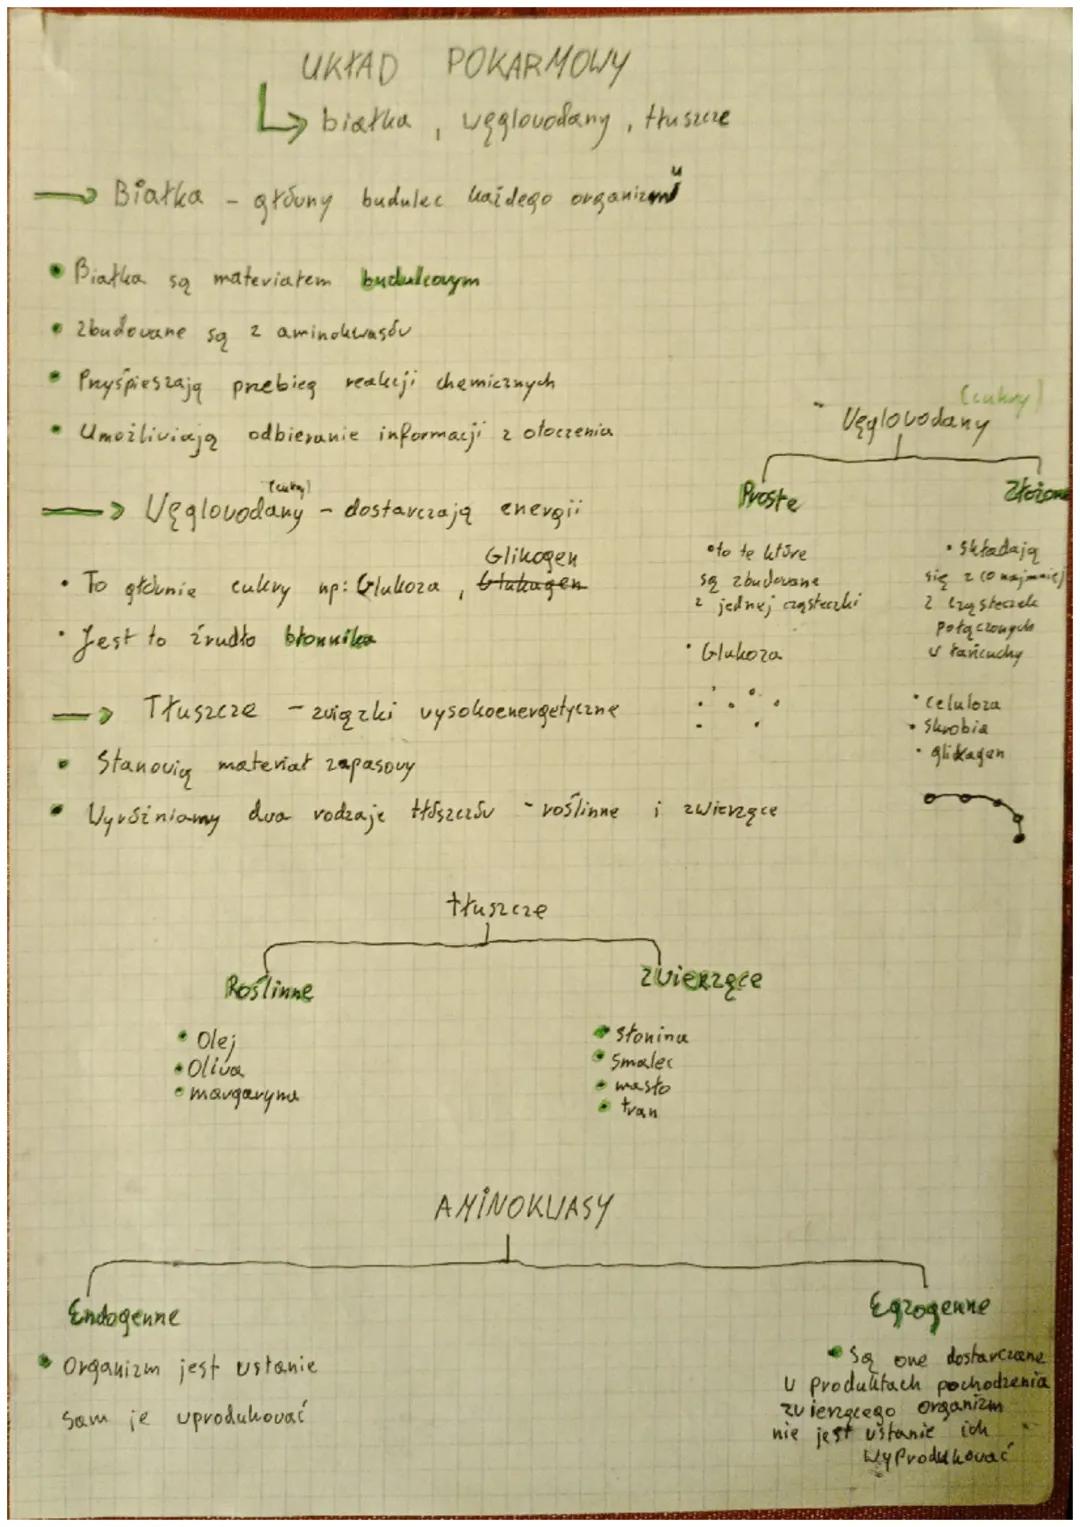 UKŁAD POKARMOWY
białka, węglowodany, tłuszcze
Białka - główny budulec każdego organizmu
Białka są materiałem budulcowym
Zbudowane są z aminokwasów
Przyśpieszają przebieg reakcji chemicznych
Umożliwiają odbieranie informacji z otoczenia
(cukry)
Węglowodany - dostarczają energii
Glikogen
To głównie cukry np: Glukoza, Glukagen
Jest to źrudło błonnika
(cukry)
Węglowodany
Proste
Złożone
to te które
są zbudowane
z jednej cząsteczki
Glukoza
składają
się z co najmniej
2 cząsteczek
połączonych
w łańcuchy
celuloza
skrobia
glikagen
Tłuszcze - związki wysokoenergetyczne
Stanowią materiał zapasowy
Wyróżniamy dwa rodzaje tłószczów - roślinne i zwierzęce
tłuszcze
Roślinne
Olej
Oliwa
margaryna
zwierzęce
słonina
smalec
masło
tran
AMINOKWASY
Endogenne
Organizm jest wstanie
sam je wprodukować
Egzogenne
Są one dostarczane
w produktach pochodzenia
zwierzęcego organizm
nie jest wstanie ich
wyprodukować